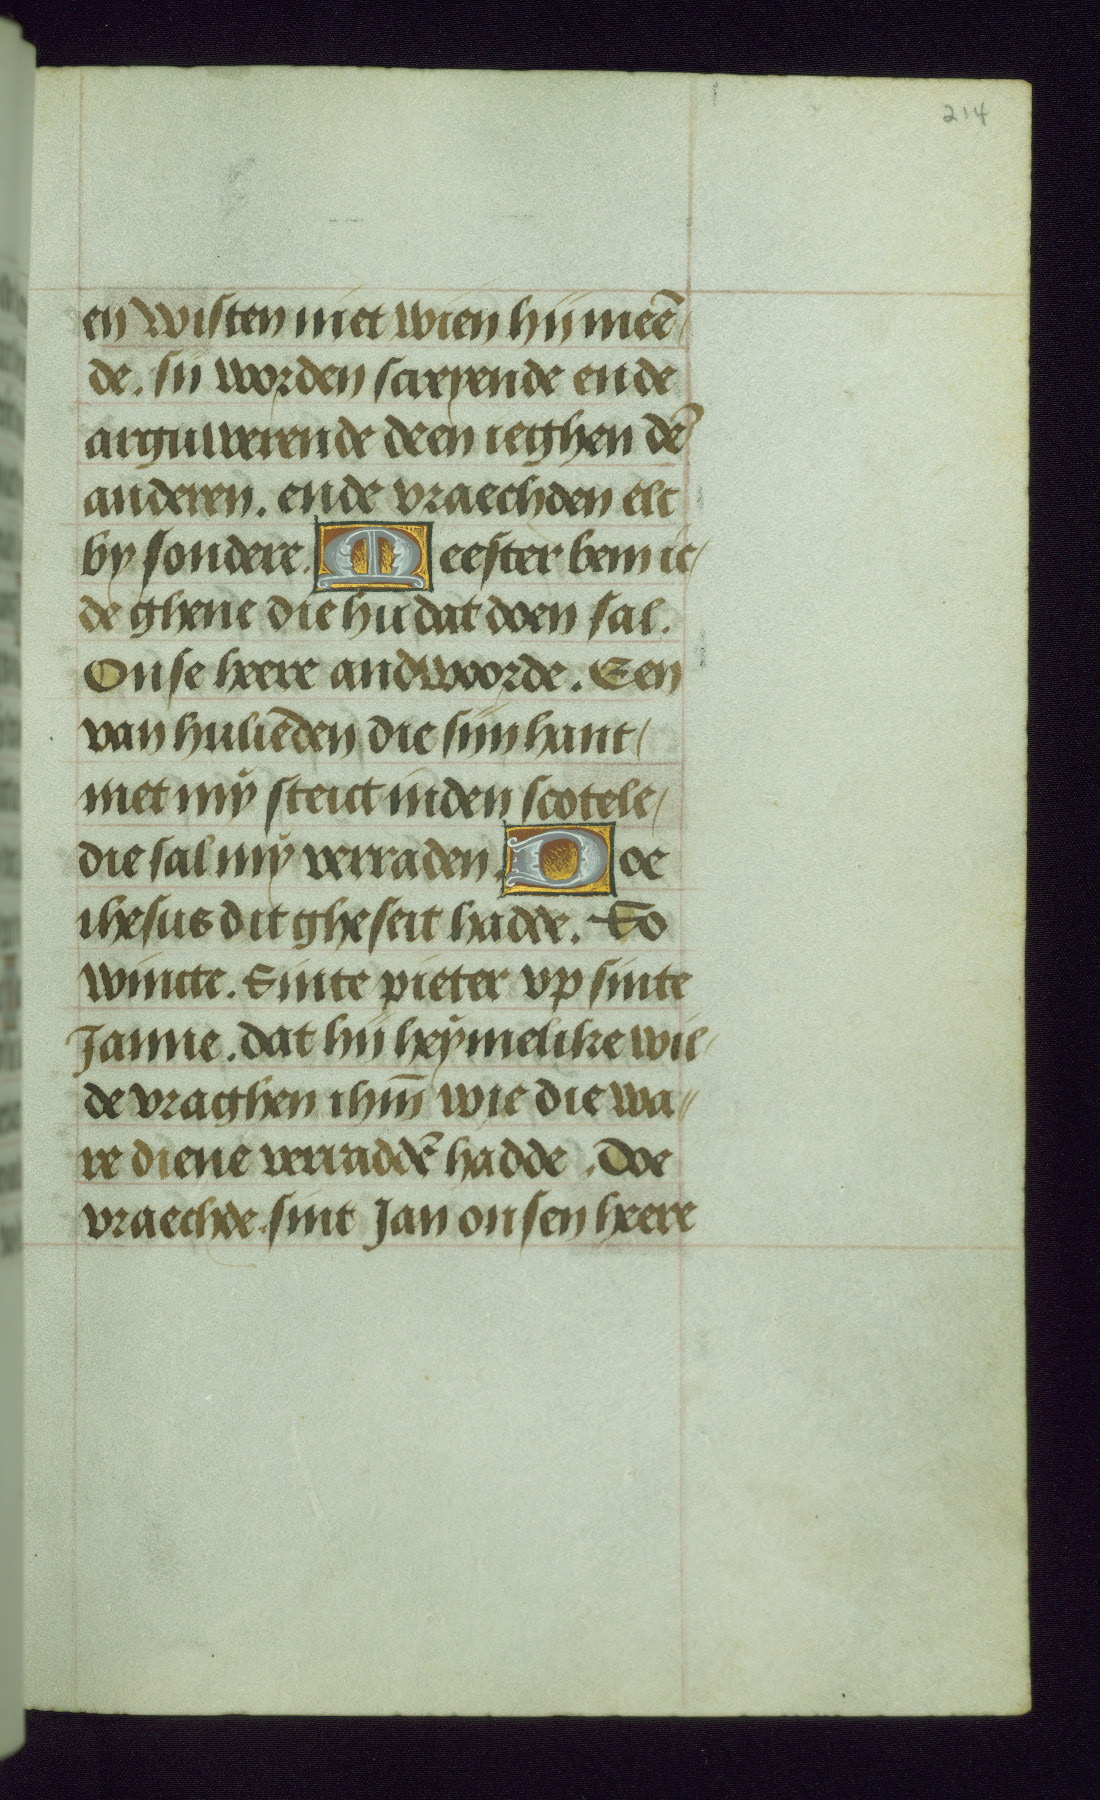 214
en wisten niet wien hij meē/
de. sij worden screyende ende
arguwerende deen ieghen dē
anderen. ende vraechden elc
by sondere. Meester bem ic/
de ghene die hu dat doen sal.
Onse heere andwoorde. Een
van hulieden die sijn hant/
met mÿ steict inden scotele/
die sal mÿ verraden. Doe
ihesus dit gheseit hadde. So
wincte. Sinte pieter vp sinte
Janne. dat hij heÿmelike wil/
de vraghen ihm̄ wie die wa//
re diene verraddē hadde. Doe
vraechde sint Jan onsen heere